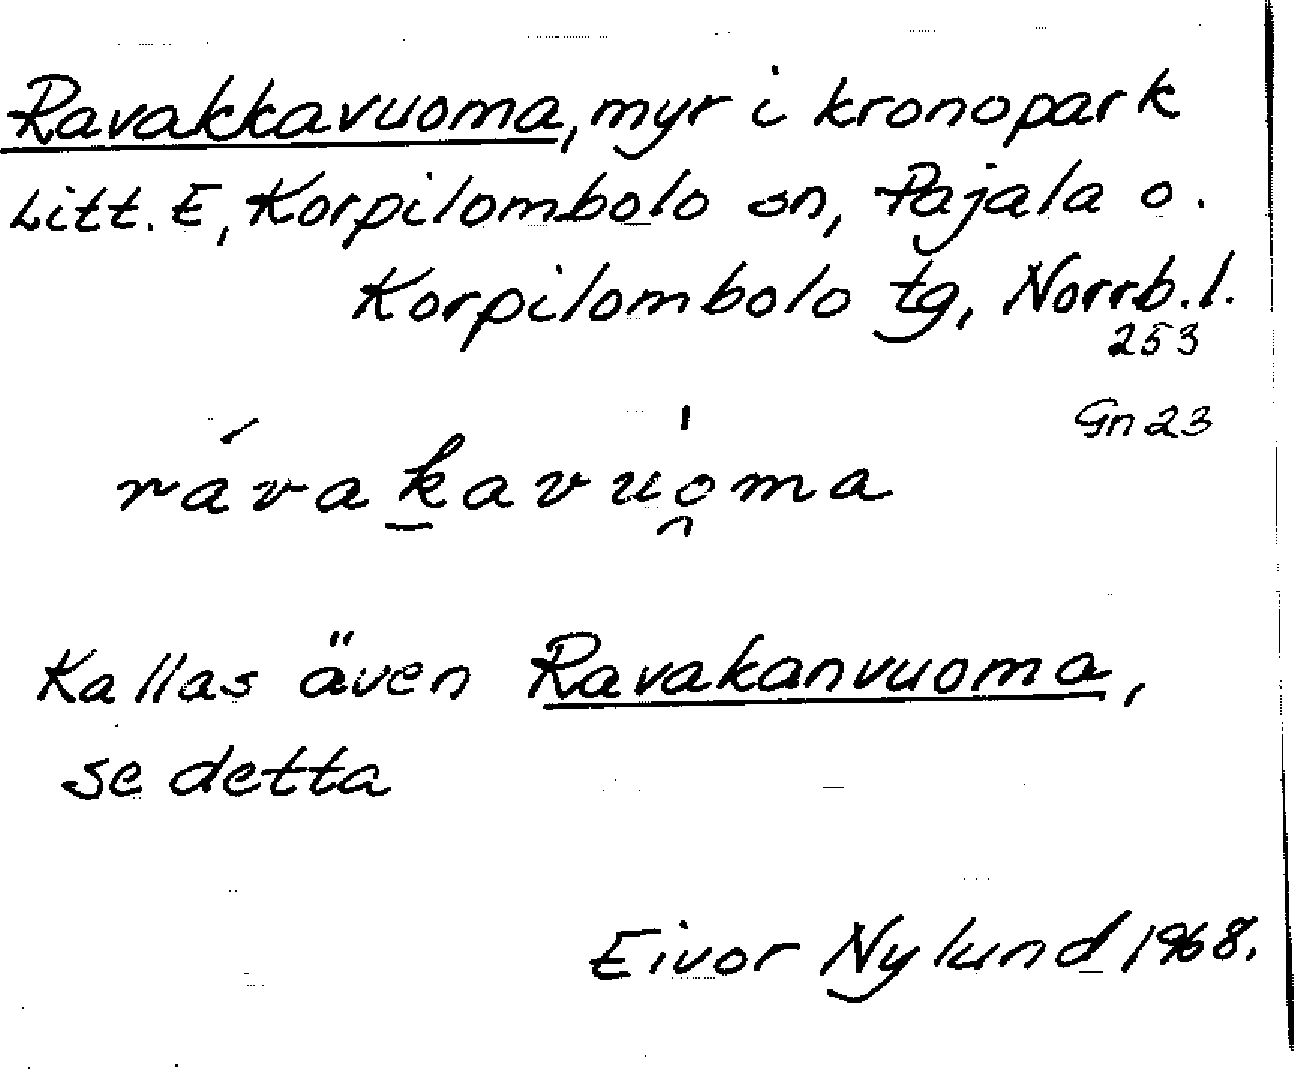 Ravakkavuoma, myr i kronopark
Litt. E, Korpilombolo sn, Pajala o.
Korpilombolo tg, Norrb.l.
253
Gn 23
rávak̲avu̍o̯ma
Kallas även Ravakanvuoma,
se detta
Eivor Nylund 1968.